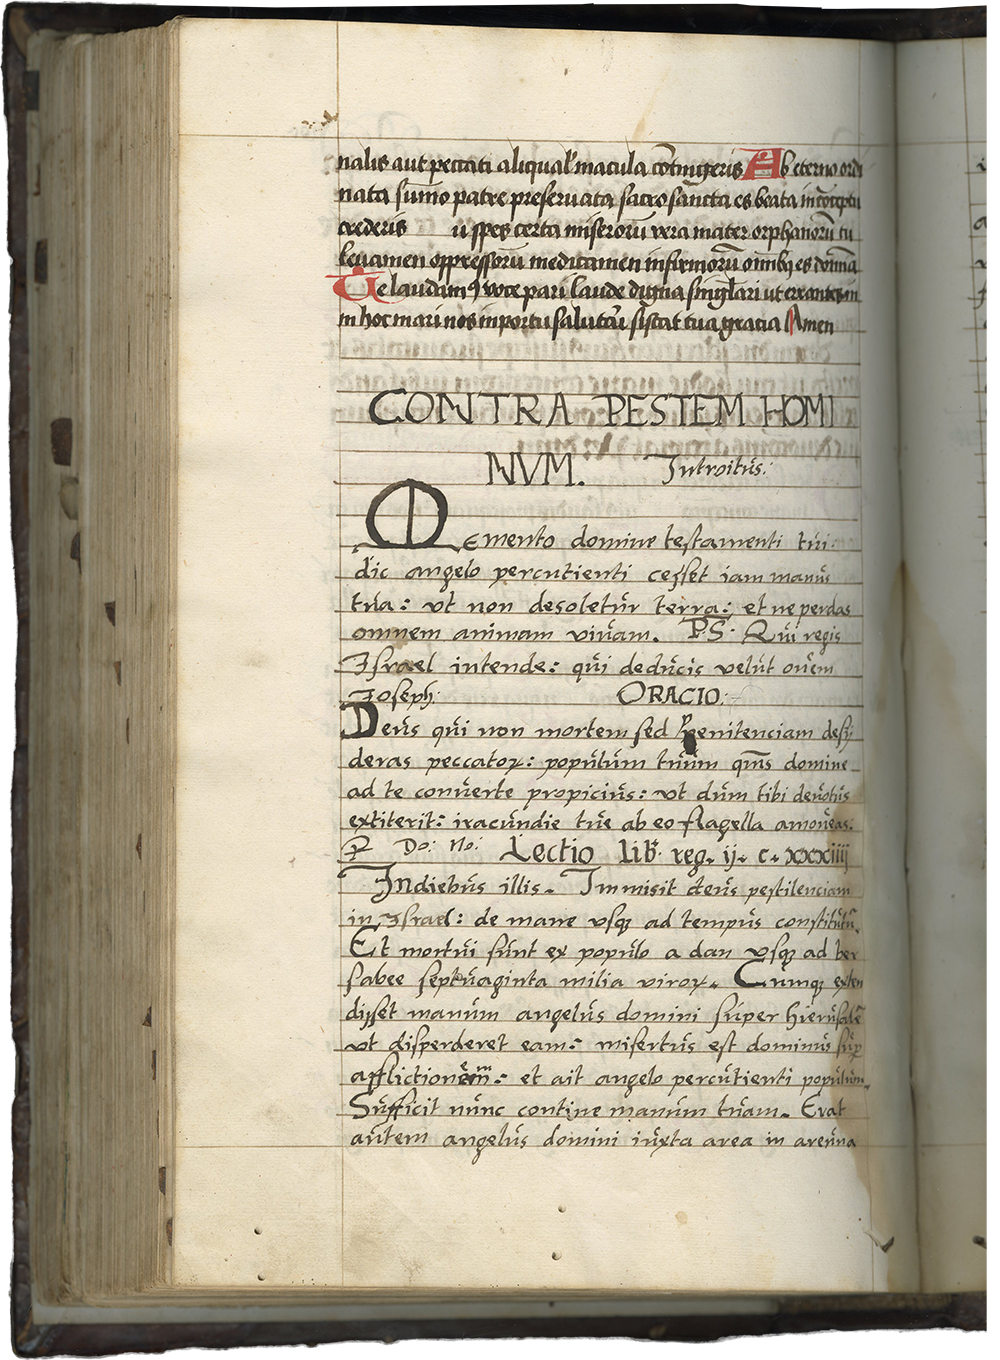 nalis aut peccati aliqual' macula cōtingeris Ab eterno ordi
nata sūmo patre preseruata sacrosancta es beata in cōceptu
crederis u spes certa miserorū vera mater orphanorū tu
leuamen oppressorū medicamen infirmorū omībq es domīa
Te laudamꝰ voce pari laude digna singl'ari ut errantes in
in hoc mari nos in portu salutari sistat tua gracia Amen
CONTRA PESTEM HOMI
NVM. Introitus:
Memento domine testamenti tui:
dic angelo percutienti cesset iam manus
tua: vt non desoletur terra: et ne perdas
omnem animam viuam. PS. Qui regis
Israel intende: qui deducis velut ouem
Joseph: ORACIO:
Deus qui non mortem sed penitenciam desy
deras peccatoꝝ: populum tuum qms domine
ad te conuerte propicius: vt dum tibi deuotus
extiterit: iracundie tue ab eo flagella amoueas:
P Do: No: Lectio lib. reg. ij. c. xxxiiij
In diebus illis. Immisit deus pestilenciam
in Israel: de mane vsqꝫ ad tempus constitutū.
Et mortui sunt ex populo a dan vsqꝫ ad ber
sabee septuaginta milia viroꝝ. Cumqꝫ exten
disset manum angelus domini super hierusalē
vt disperderet eam: misertus est dominus sup
afflictionem: et ait angelo percutienti populum.
Sufficit nunc contine manum tuam. Erat
autem angelus domini iuxta area in areuna